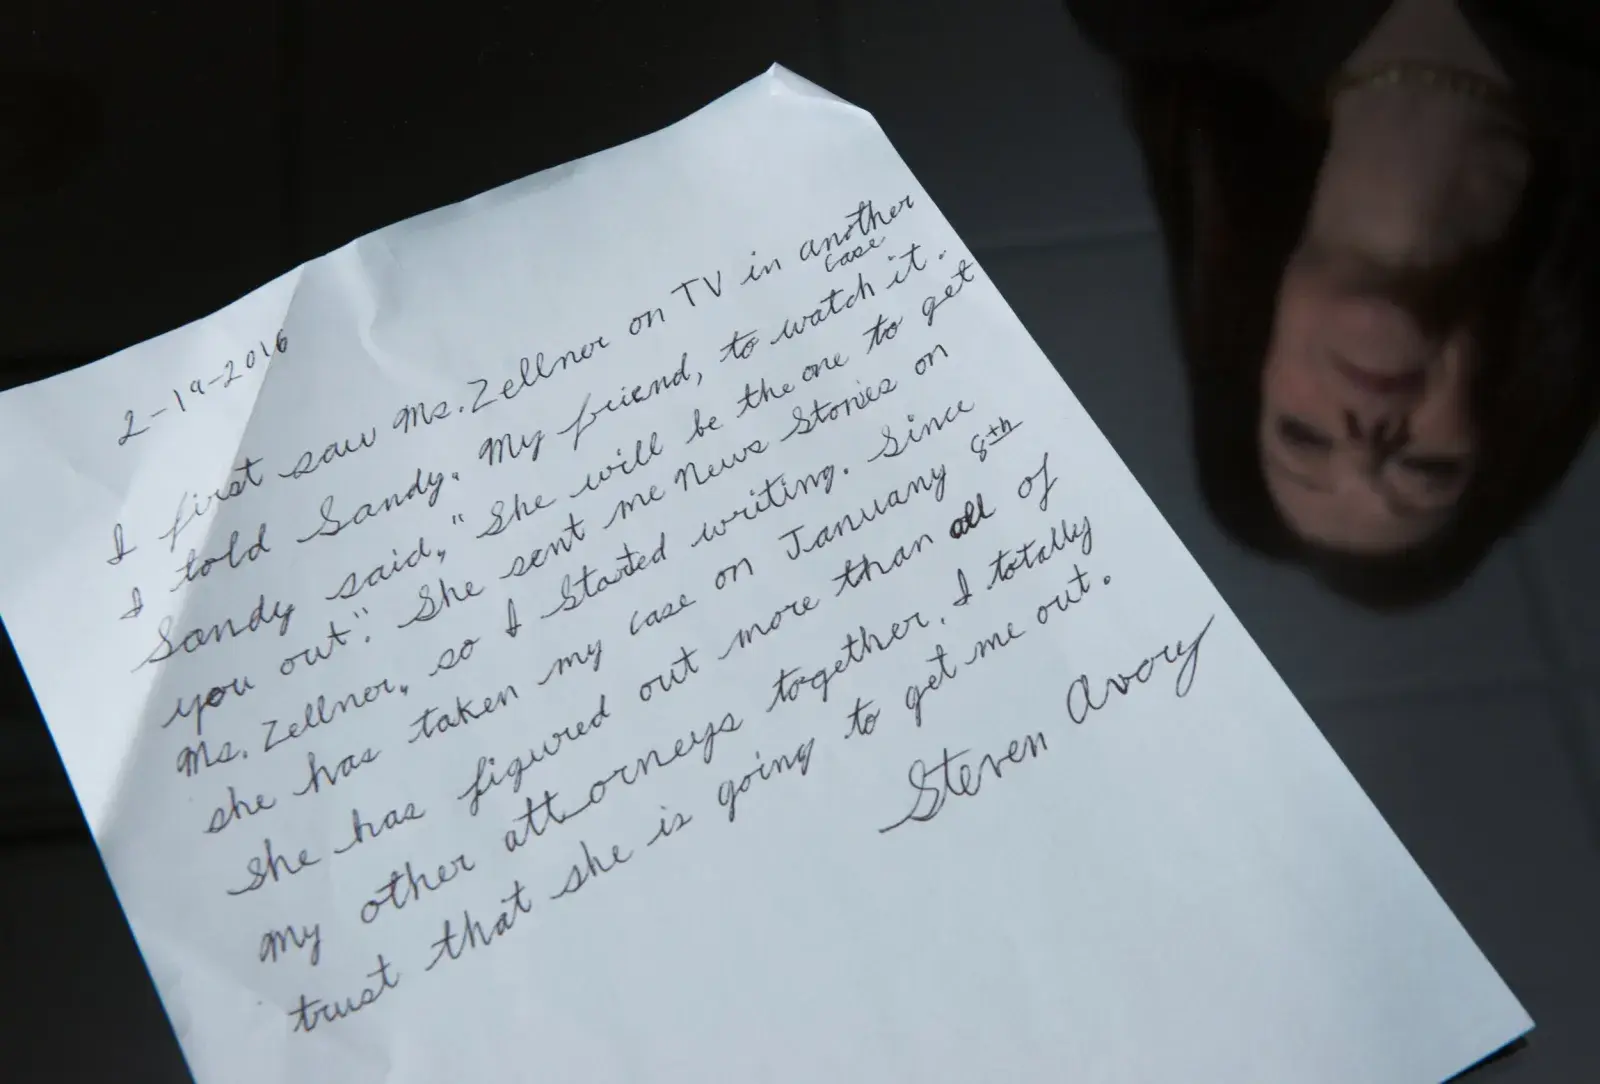 2-19-2016
I first saw Ms. Zellner on TV in another
case
I told Sandy. My friend, to watch it.
Sandy said, "She will be the one to get
you out". She sent me News Stories on
Ms. Zellner, so I Started writing. Since
she has taken my case on January 8th
She has figured out more than all of
My other attorneys together. I totally
trust that she is going to get me out.
Steven Avery